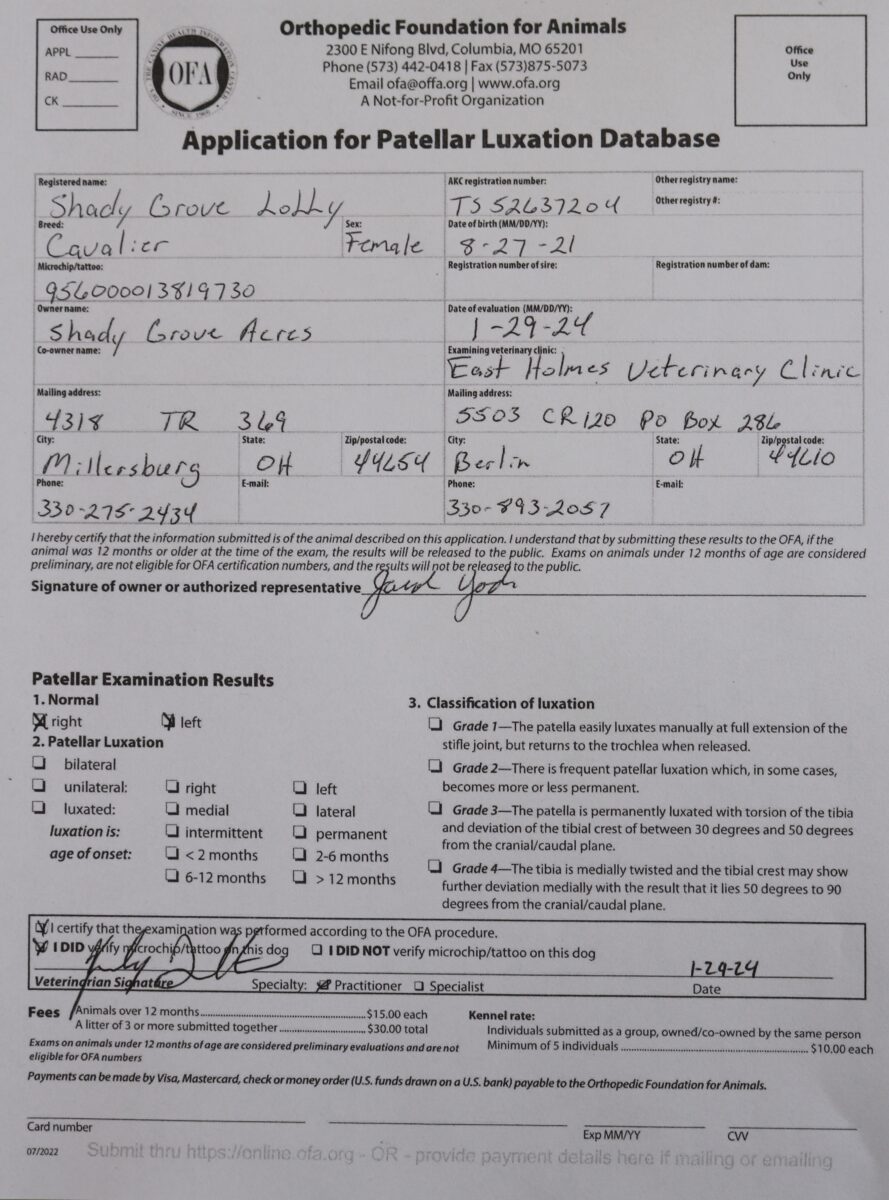 Office Use Only
APPL
RAD
CK
OFA
THE CANINE HEALTH INFORMATION CENTER
SINCE 1966
Orthopedic Foundation for Animals
2300 E Nifong Blvd, Columbia, MO 65201
Phone (573) 442-0418 | Fax (573)875-5073
Email ofa@offa.org | www.ofa.org
A Not-for-Profit Organization
Office
Use
Only
Application for Patellar Luxation Database
Registered name:
Shady Grove Lolly
AKC registration number:
TS 52637204
Other registry name:
Other registry #:
Breed:
Cavalier
Sex:
Female
Date of birth (MM/DD/YY):
8-27-21
Microchip/tattoo:
956000013819730
Registration number of sire:
Registration number of dam:
Owner name:
Shady Grove Acres
Date of evaluation (MM/DD/YY):
1-29-24
Co-owner name:
Examining veterinary clinic:
East Holmes Veterinary Clinic
Mailing address:
4318 TR 369
Mailing address:
5503 CR 120 PO Box 286
City:
Millersburg
State:
OH
Zip/postal code:
44654
City:
Berlin
State:
OH
Zip/postal code:
44610
Phone:
330-275-2434
E-mail:
Phone:
330-893-2057
E-mail:
I hereby certify that the information submitted is of the animal described on this application. I understand that by submitting these results to the OFA, if the
animal was 12 months or older at the time of the exam, the results will be released to the public. Exams on animals under 12 months of age are considered
preliminary, are not eligible for OFA certification numbers, and the results will not be released to the public.
Signature of owner or authorized representative
Patellar Examination Results
1. Normal
right left
2. Patellar Luxation
bilateral
unilateral: right left
luxated: medial lateral
luxation is: intermittent permanent
age of onset: < 2 months 2-6 months
6-12 months > 12 months
3. Classification of luxation
Grade 1—The patella easily luxates manually at full extension of the
stifle joint, but returns to the trochlea when released.
Grade 2—There is frequent patellar luxation which, in some cases,
becomes more or less permanent.
Grade 3—The patella is permanently luxated with torsion of the tibia
and deviation of the tibial crest of between 30 degrees and 50 degrees
from the cranial/caudal plane.
Grade 4—The tibia is medially twisted and the tibial crest may show
further deviation medially with the result that it lies 50 degrees to 90
degrees from the cranial/caudal plane.
I certify that the examination was performed according to the OFA procedure.
I DID verify microchip/tattoo on this dog I DID NOT verify microchip/tattoo on this dog
1-29-24
Veterinarian Signature Specialty: Practitioner Specialist Date
Fees Animals over 12 months $15.00 each
A litter of 3 or more submitted together $30.00 total
Exams on animals under 12 months of age are considered preliminary evaluations and are not
eligible for OFA numbers
Kennel rate:
Individuals submitted as a group, owned/co-owned by the same person
Minimum of 5 individuals $10.00 each
Payments can be made by Visa, Mastercard, check or money order (U.S. funds drawn on a U.S. bank) payable to the Orthopedic Foundation for Animals.
Card number Exp MM/YY CVV
07/2022 Submit thru https://online.ofa.org - OR - provide payment details here if mailing or emailing